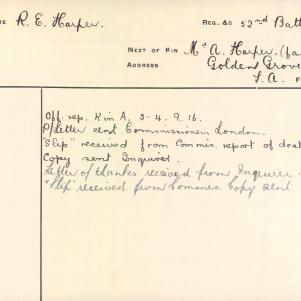 R. E. Harper. REG. &C 52nd Batt
NEXT OF KIN Mr A. Harper. (fa
ADDRESS Golden Grove
S.A.
Off. rep. K in A. 3-4. 9. 16.
P/Letter sent Commissioner, London.
"Slip" received from Commis. report of deat
Copy sent Inquirer.
Letter of thanks received from Inquirer.
"Slip" received from Commsn. Copy sent